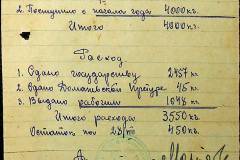 2. Поступило с начала года 4000 кг.
Итого 4000 кг.
Расход
1. Сдано государству 2457 кг.
2. Сдано 45 кг.
3. Выдано рабочим 1048 кг.
Итого расхода 3550 кг.
Остаток на 450 кг.